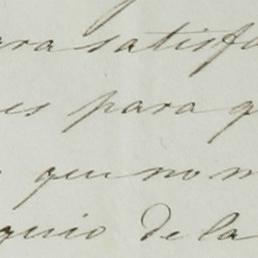 ara satisf
es para q
que no n
quio de la